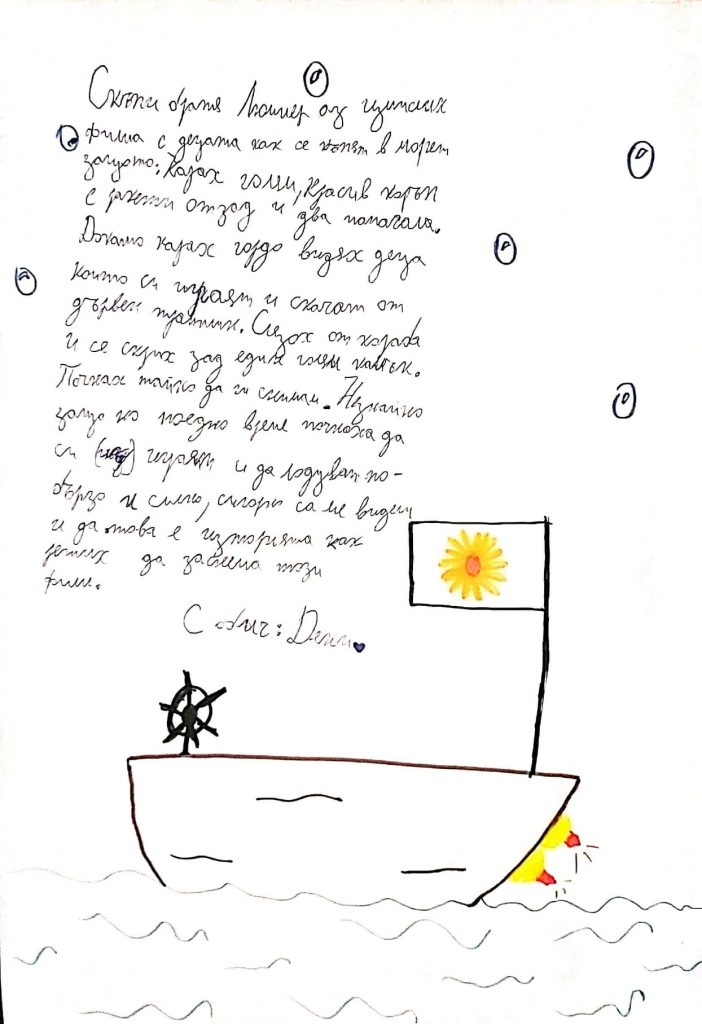 Скъпи братя Люмиер аз измислих
филма с децата как се къпят в морет
защото: Карах голям, красив кораб
с ракети отзад и два помагала.
Докато карах гордо видях деца
които си играят и скачат от
дървен трамплин. Слязох от кораба
и се скрих зад един голям камък.
Почнах тайно да ги снимам. Незнайно
защо по едно време почнаха да
си играят и да лудуват по-
бързо и силно, сигурно са ме видели
и да това е историята как
реших да заснема този
филм.
С обич: Дени